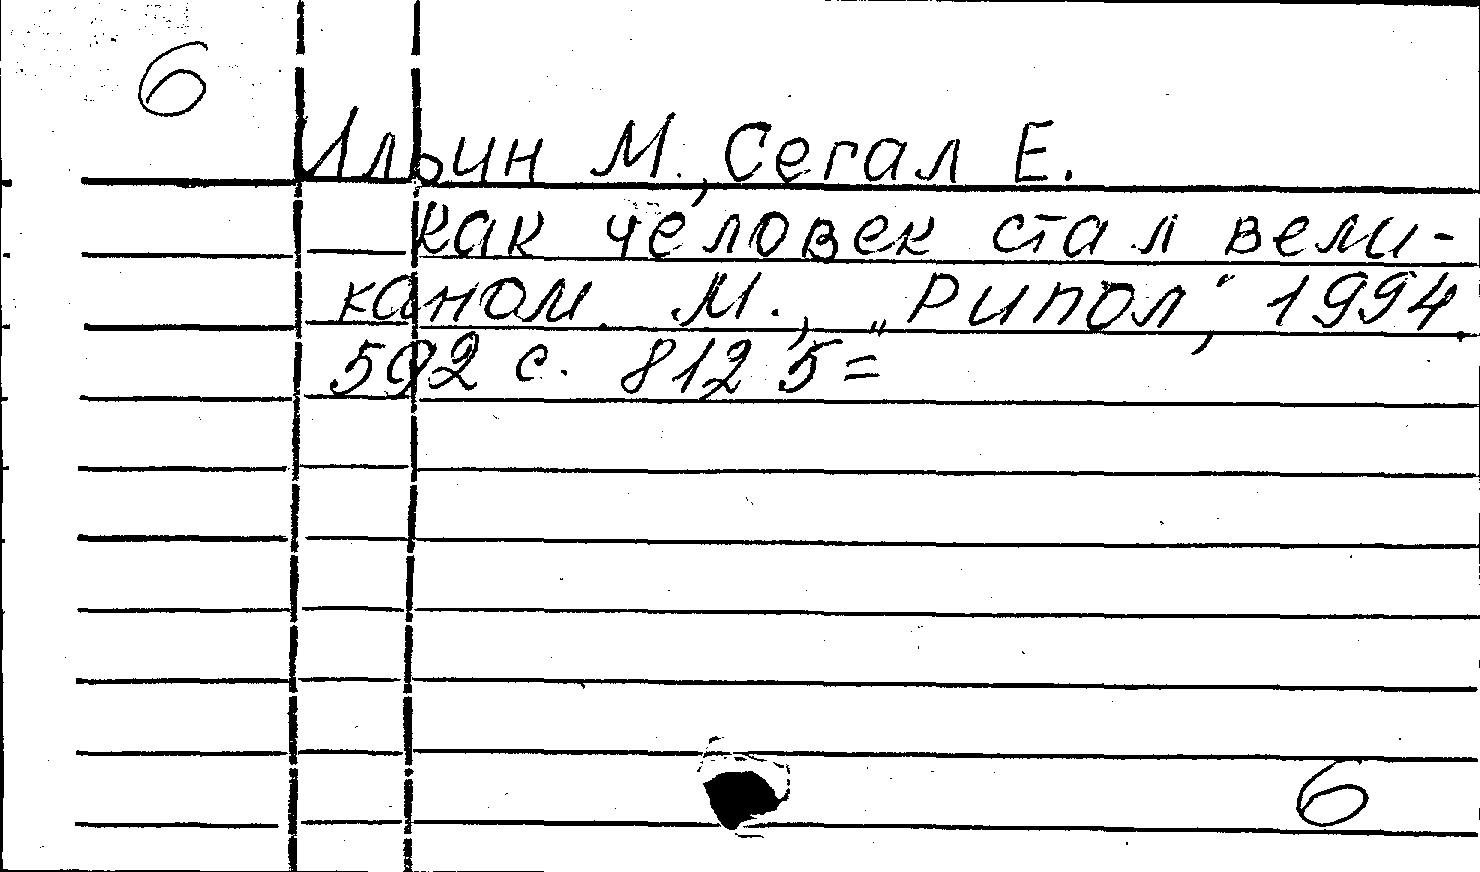 6
Ильин М., Сегал Е.
как человек стал вели-
каном. М., „Рипол“, 1994.
592 с. 812 5=
6